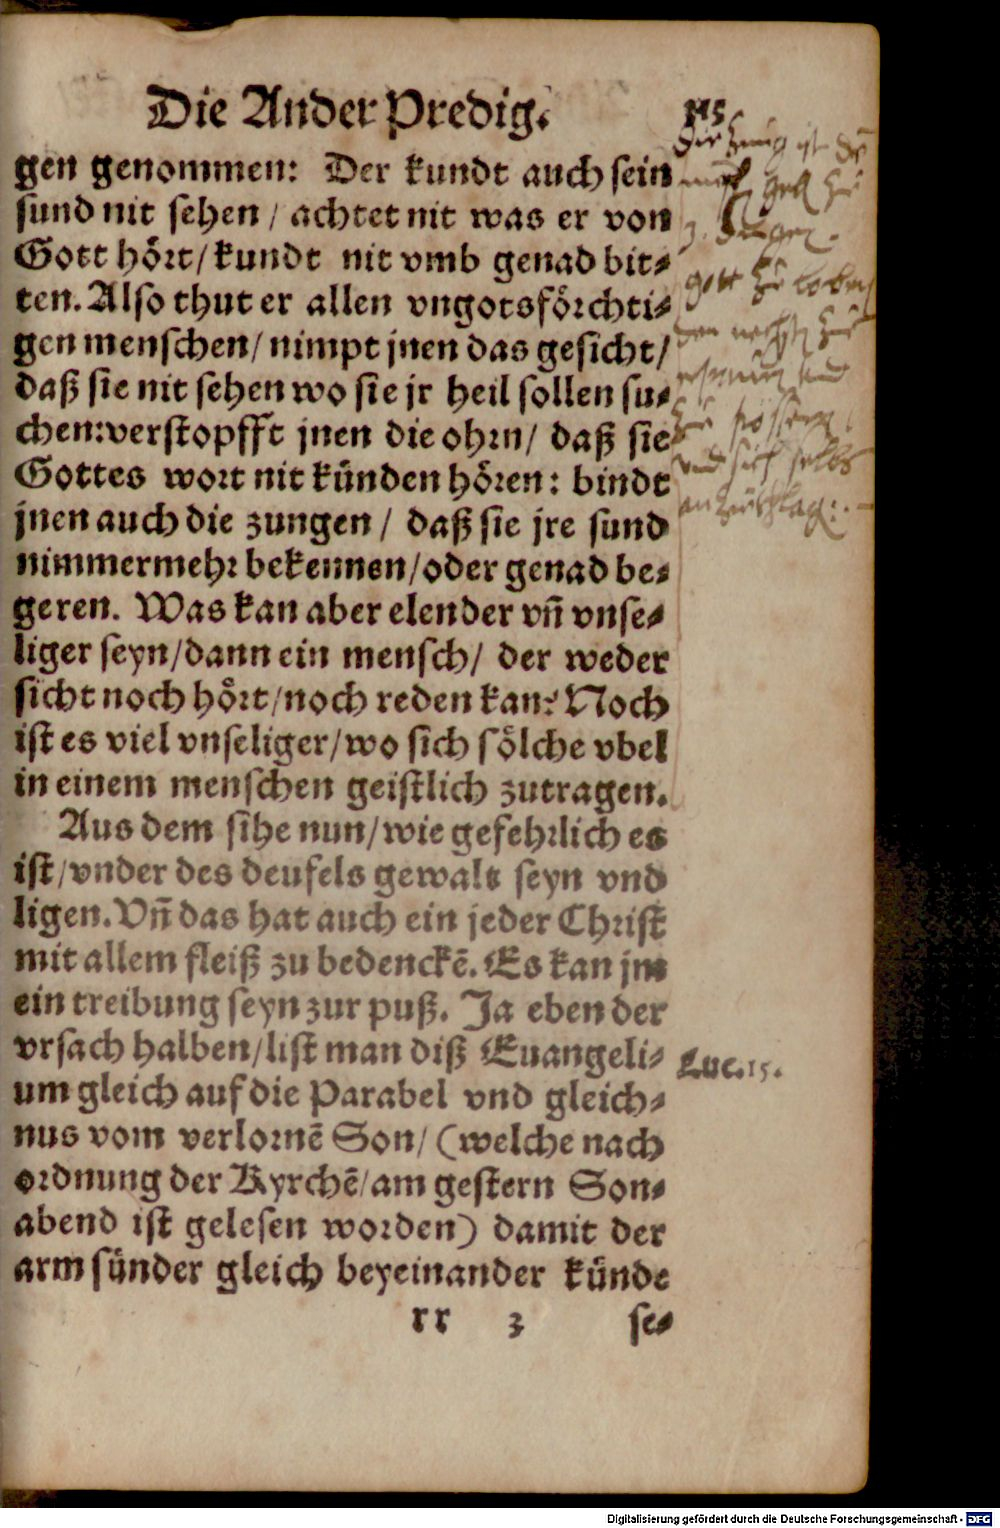 Die Ander Predig.
gen genommen: Der kundt auch sein
sund nit sehen / achtet nit was er von
Gott hört/ kundt nit vmb genad bit-
ten. Also thut er allen vngotsförchti-
gen menschen/ nimpt jnen das gesicht/
daß sie nit sehen wo sie jr heil sollen su-
chen: verstopfft jnen die ohrn/ daß sie
Gottes wort nit künden hören: bindt
jnen auch die zungen / daß sie jre sund
nimmermehr bekennen/oder genad be-
geren. Was kan aber elender vñ vnse-
liger seyn/dann ein mensch/ der weder
sicht noch hört/noch reden kan? Noch
ist es viel vnseliger/wo sich sölche vbel
in einem menschen geistlich zutragen.
Aus dem sihe nun/wie gefehrlich es
ist/vnder des deufels gewalt seyn vnd
ligen. Vñ das hat auch ein jeder Christ
mit allem fleiß zu bedenckē. Es kan jm
ein treibung seyn zur puß. Ja eben der
vrsach halben/list man diß Euangeli-
um gleich auf die Parabel vnd gleich-
nus vom verlornē Son/ (welche nach
ordnung der Kyrchē/am gestern Son-
abend ist gelesen worden) damit der
arm sünder gleich beyeinander künde
rr 3 se-
gott zu loben
den nechsten zu
vnd sich selbs
Luc. 15.
Digitalisierung gefördert durch die Deutsche Forschungsgemeinschaft - DFG